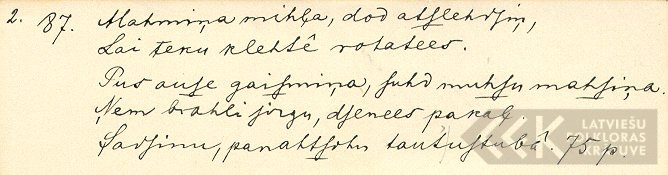 2. 87. Mahmiņa mihļa, dod atslehdsiņ,
Lai teku klehtê rotatees.
Pus ause gaismiņa, suhd muhsu mahsiņa.
Ņem brahli sirgu, dsenees pakaļ.
Sadsinu, panahksohn tautu stubâ. 75 p.
LATVIEŠU
FOLKLORAS
KRĀTUVE